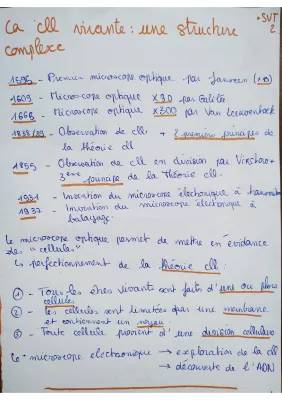 La cll vivante : une structure
• SVT 2
complexe
1595 - Premier microscope optique par Janssen
1609 - Microscope optique X30 par Galilée
1668 - Microscope optique X300 par Van Leeuwenhock
1838/39 - Observation de cll. + 2 premiers principes de
la théorie cll
1855 - Observation de cll en division par Virchow +
3ème principe de la théorie cll.
1931 - Invention du microscope électronique à
1937 - Invention du microscope électronique à
balayage.
Le microscope optique permet de mettre en évidence
des "cellules".
↳ perfectionnement de la théorie cll :
① - Tous les êtres vivants sont faits d'une ou plusieurs
cellules
② - Les cellules sont limitées par une membrane
et contiennent un noyau.
③ - Toute cellule provient d'une division cellulaire
Le microscope électronique → exploration de la cll
→ découverte de l'ADN